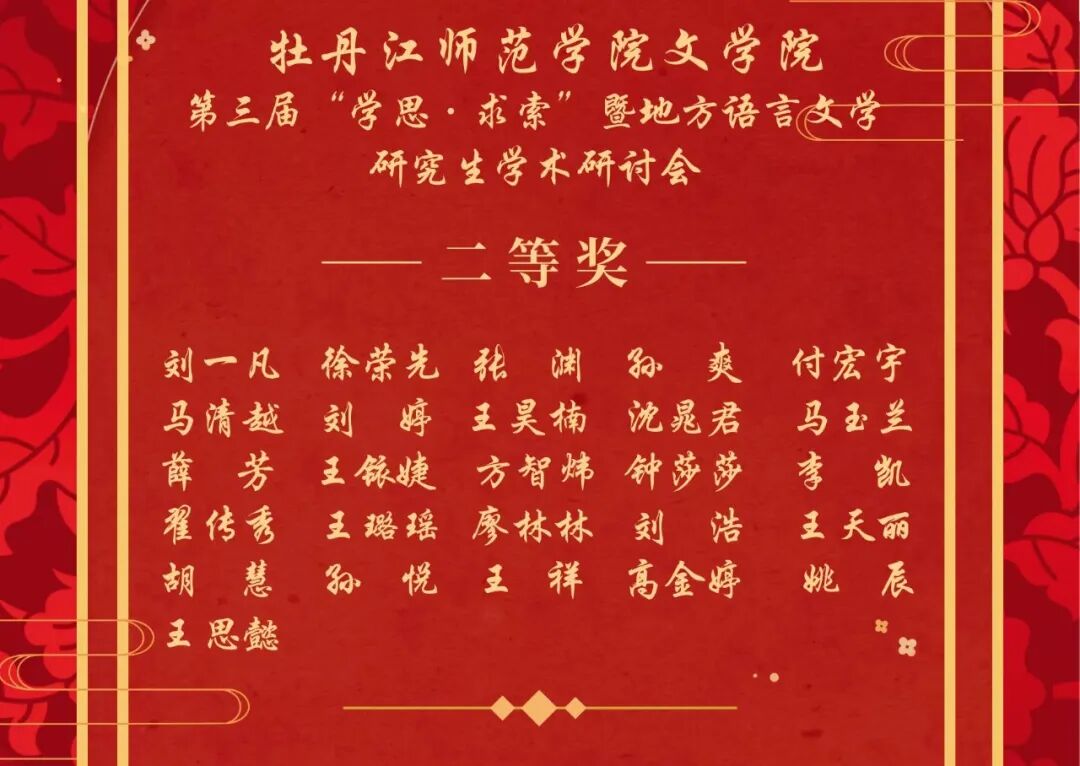 牡丹江师范学院文学院
第三届“学思·求索”暨地方语言文学
研究生学术研讨会
二等奖
刘一凡 徐荣先 张渊 孙爽 付宏宇
马清越 刘婷 王昊楠 沈晁君 马玉兰
薛芳 王铱婕 方智炜 钟莎莎 李凯
翟传秀 王璐瑶 廖林林 刘浩 王天丽
胡慧 孙悦 王祥 高金婷 姚辰
王思懿